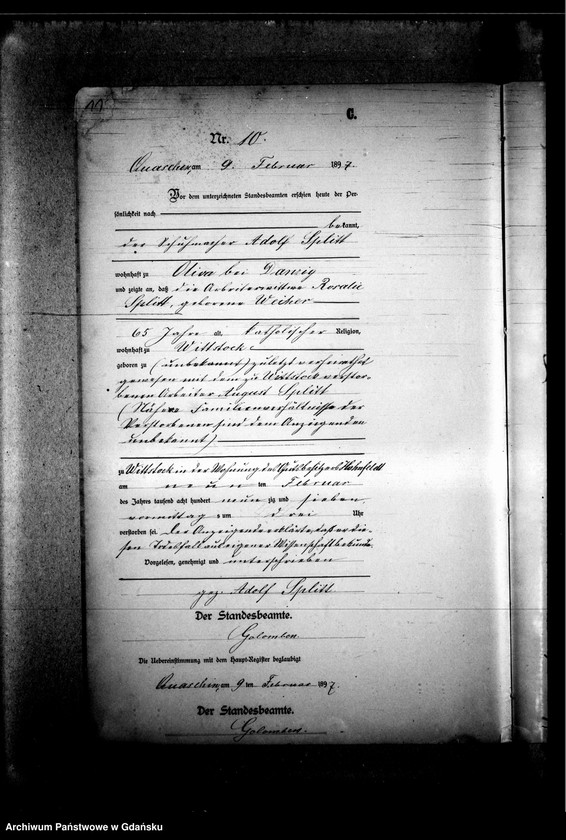 11
C.
Nr. 10.
Quaschin, am 9. Februar 1897.
Vor dem unterzeichneten Standesbeamten erschien heute der Per-
sönlichkeit nach
bekannt,
der Schuhmacher Adolf Splitt
wohnhaft zu Oliva bei Danzig
und zeigte an, daß die Arbeiterwittwe Rosalie
Splitt, geborene Weiher
65 Jahre alt, katholischer Religion,
wohnhaft zu Wittstock
geboren zu (unbekannt) zuletzt verheirathet
gewesen mit dem zu Wittstock verstor-
benen Arbeiter August Splitt
(Nähere Familienverhältnisse der
Verstorbenen sind dem Anzeigenden
unbekannt)
zu Wittstock in der Wohnung des Gutsbesitzers Hohnfeldt
am neunten Februar
des Jahres tausend acht hundert neunzig und sieben,
vormittags um drei Uhr
verstorben sei. Der Anzeigende erklärte, daß er die-
sen Todesfall aus eigener Wissenschaft bekunde.
Vorgelesen, genehmigt und unterschrieben
gez. Adolf Splitt
Der Standesbeamte.
Golombon
Die Uebereinstimmung mit dem Haupt-Register beglaubigt
Quaschin, am 9 ten Februar 1897.
Der Standesbeamte.
Golombon.
Archiwum Państwowe w Gdańsku